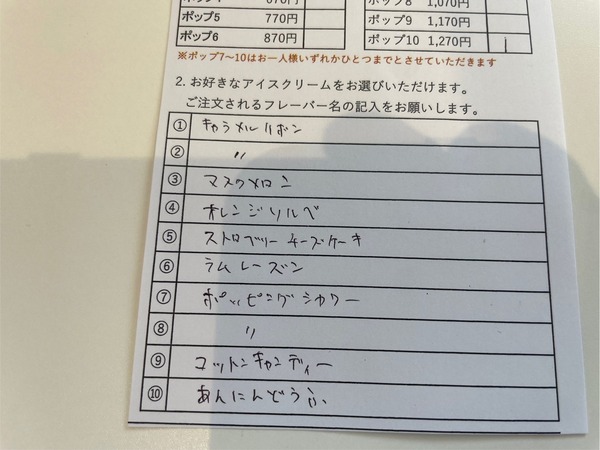 ポップ5 770円
ポップ6 870円
ポップ8 1,070円
ポップ9 1,170円
ポップ10 1,270円 |
※ポップ7〜10はお一人様いずれかひとつまでとさせていただきます
2. お好きなアイスクリームをお選びいただけます。
ご注文されるフレーバー名の記入をお願いします。
① キャラメルリボン
② 〃
③ マスクメロン
④ オレンジソルベ
⑤ ストロベリーチーズケーキ
⑥ ラムレーズン
⑦ ポッピングシャワー
⑧ 〃
⑨ コットンキャンディー
⑩ あんにんどうふ